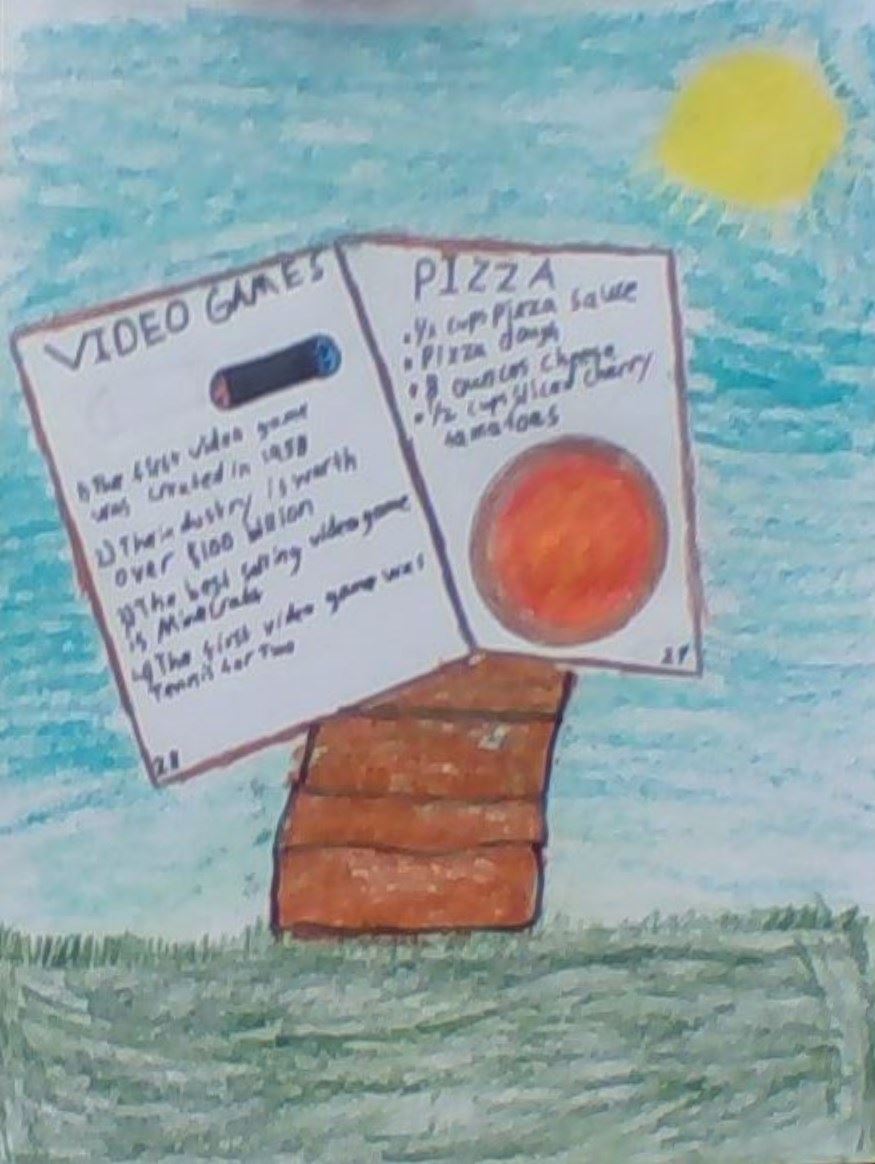 VIDEO GAMES
1) The first video game
was created in 1958
2) The industry is worth
over $100 billion
3) The best selling video game
is Minecraft
4) The first video game was
Tennis for Two
28
PIZZA
• ½ cup pizza sauce
• Pizza dough
• 8 ounces cheese
• ½ cup sliced cherry
tomatoes
29